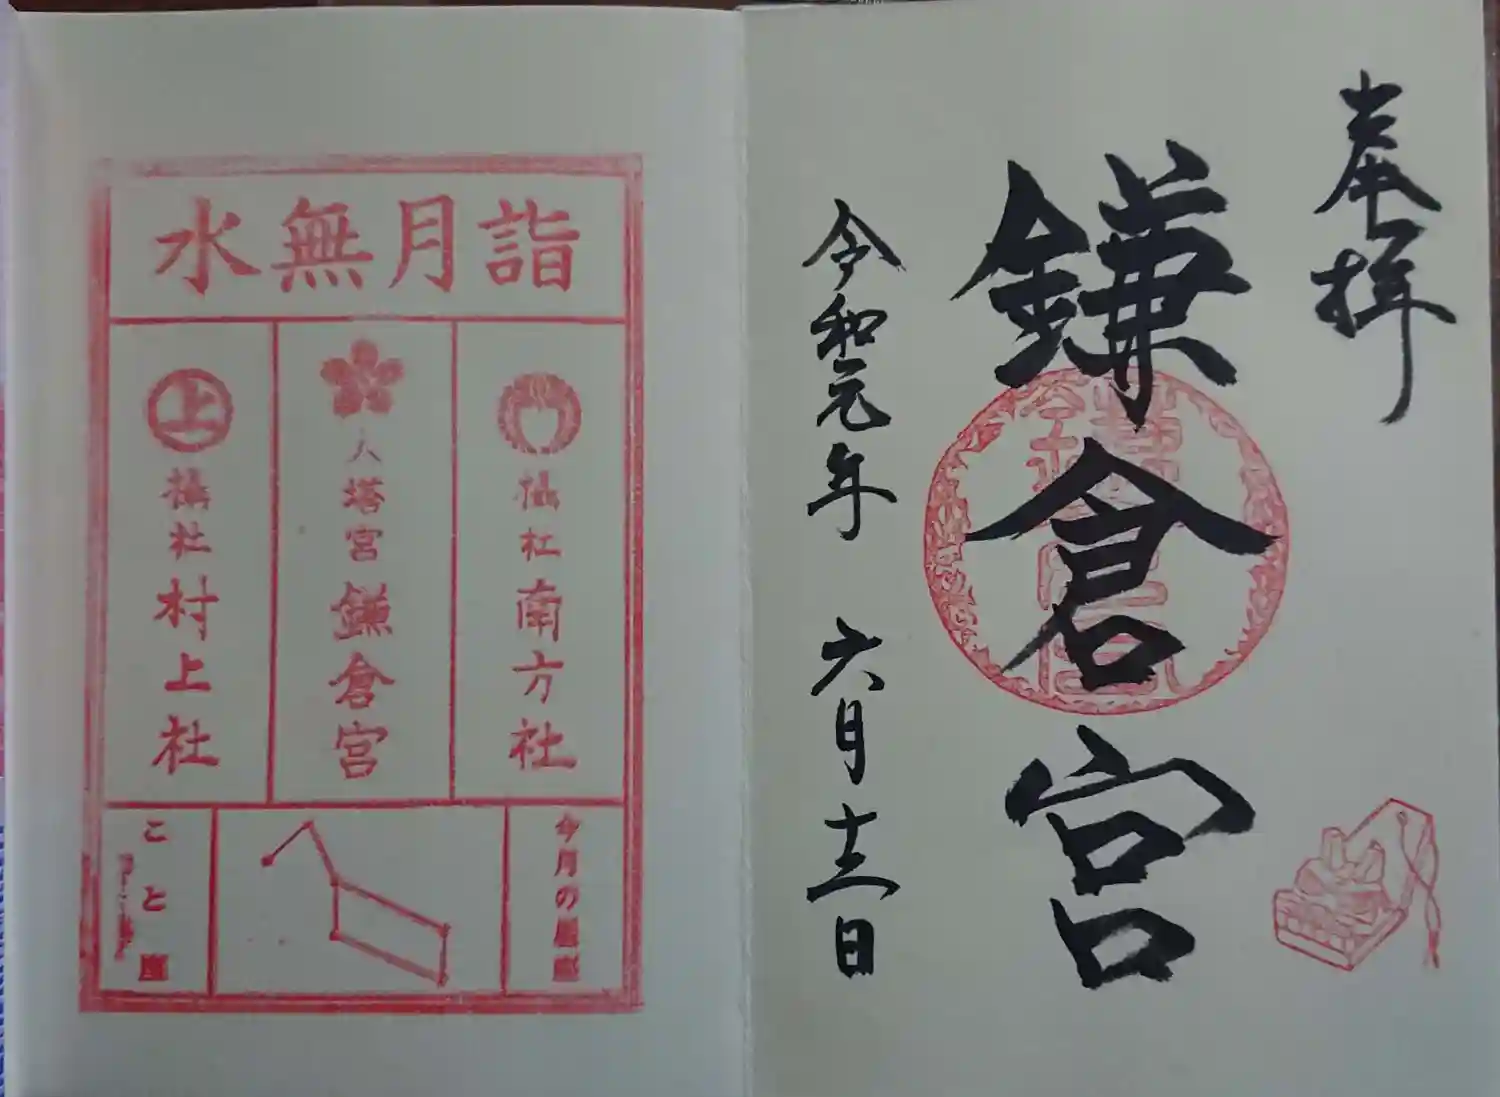 奉拝
鎌倉宮
令和元年 六月十三日
水無月詣
攝社南方社
大塔宮鎌倉宮
攝社村上社
今月の星座
こと座